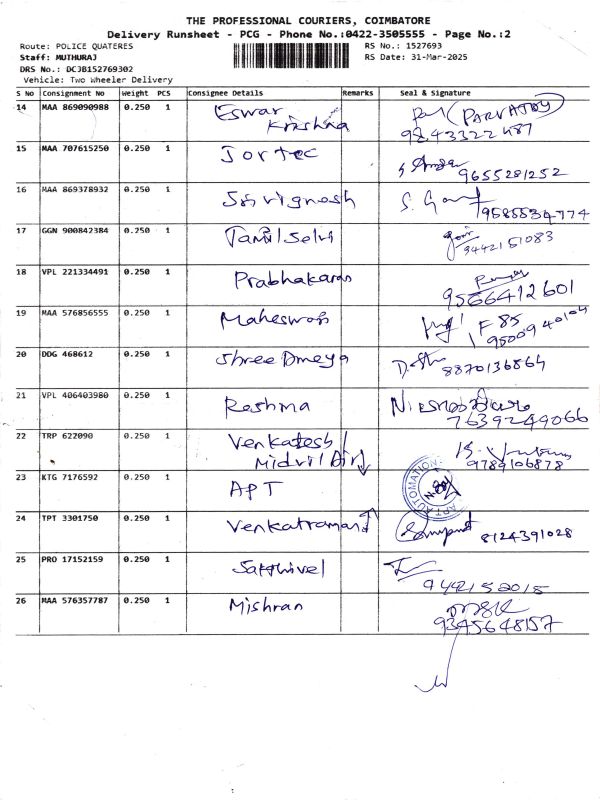 THE PROFESSIONAL COURIERS, COIMBATORE
Delivery Runsheet - PCG - Phone No.:0422-3505555 - Page No.:2
Route: POLICE QUATERES RS No.: 1527693
Staff: MUTHURAJ RS Date: 31-Mar-2025
DRS No.: DCJB152769302
Vehicle: Two Wheeler Delivery
S No Consignment No Weight PCS Consignee Details Remarks Seal & Signature
14 MAA 869090988 0.250 1 Eswar Krishna (PARVATHY)
9843322487
15 MAA 707615250 0.250 1 Jortec
9655281252
16 MAA 869378932 0.250 1 Sri vignesh
9585534774
17 GGN 900842384 0.250 1 Tamil Selvi
9442151083
18 VPL 221334491 0.250 1 Prabhakaran
9566412601
19 MAA 576856555 0.250 1 F 85
9500940104
20 DDG 468612 0.250 1 Shree
8870136864
21 VPL 406403980 0.250 1 Reshma
7639249066
22 TRP 622090 0.250 1 Venkatesh /
9789106878
23 KTG 7176592 0.250 1 APT APT AUTOMATION
24 TPT 3301750 0.250 1 Venkatramana
8124391028
25 PRO 17152159 0.250 1 Sakthivel
9442152015
26 MAA 576357787 0.250 1 Mishran
9345648157